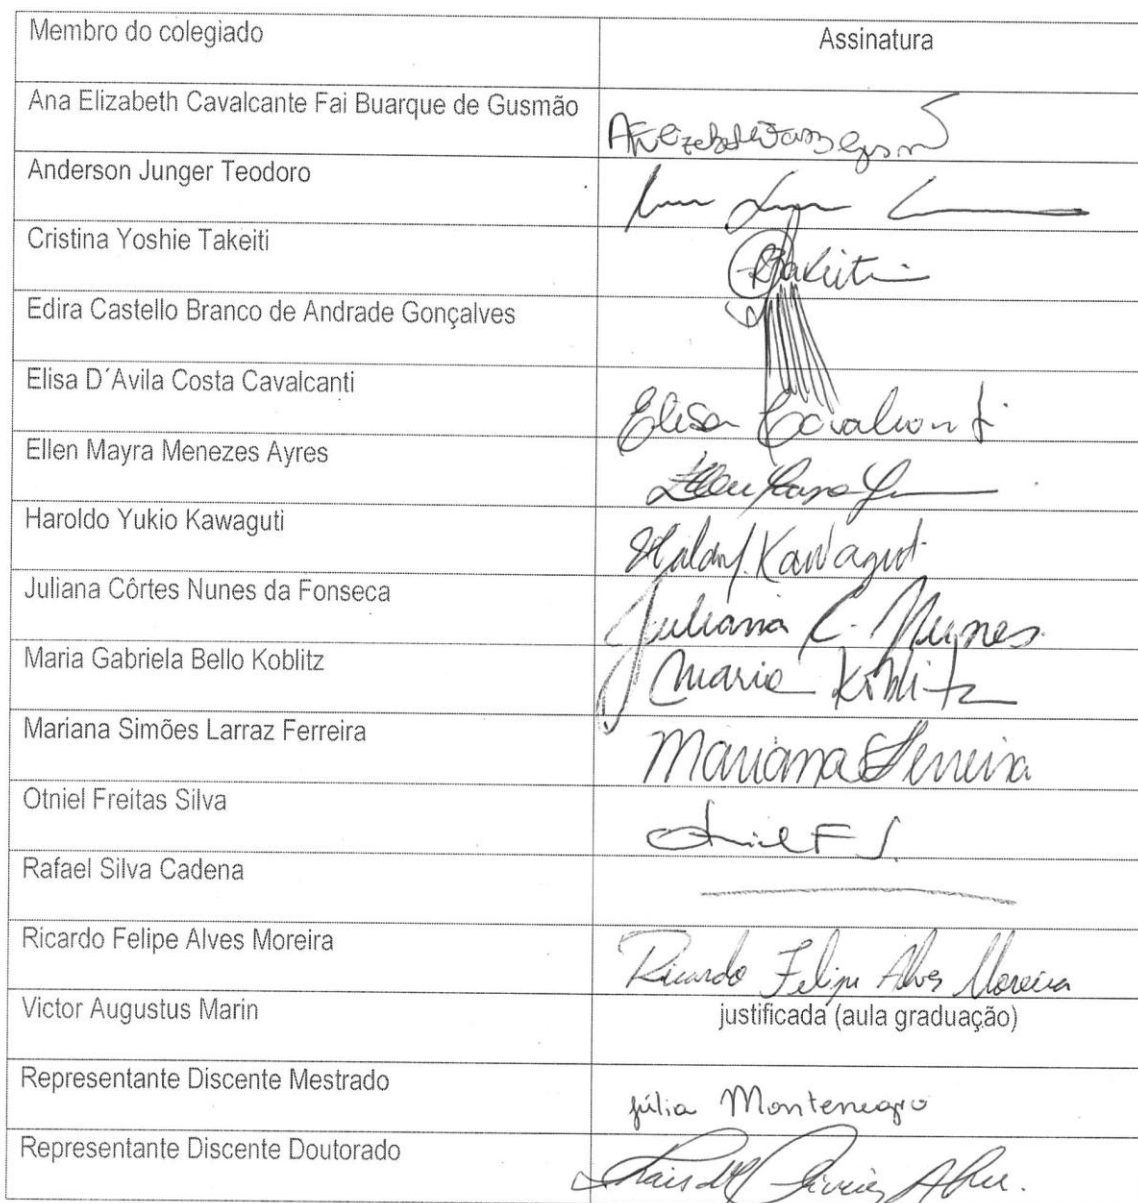 Membro do colegiado Assinatura
Ana Elizabeth Cavalcante Fai Buarque de Gusmão
Anderson Junger Teodoro
Cristina Yoshie Takeiti Takeiti
Edira Castello Branco de Andrade Gonçalves
Elisa D´Avila Costa Cavalcanti Elisa Cavalcanti
Ellen Mayra Menezes Ayres
Haroldo Yukio Kawaguti Kawaguti
Juliana Côrtes Nunes da Fonseca Juliana C. Nunes
Maria Gabriela Bello Koblitz Maria Koblitz
Mariana Simões Larraz Ferreira Mariana Ferreira
Otniel Freitas Silva Otniel F S.
Rafael Silva Cadena
Ricardo Felipe Alves Moreira Ricardo Felipe Alves Moreira
Victor Augustus Marin justificada (aula graduação)
Representante Discente Mestrado Júlia Montenegro
Representante Discente Doutorado